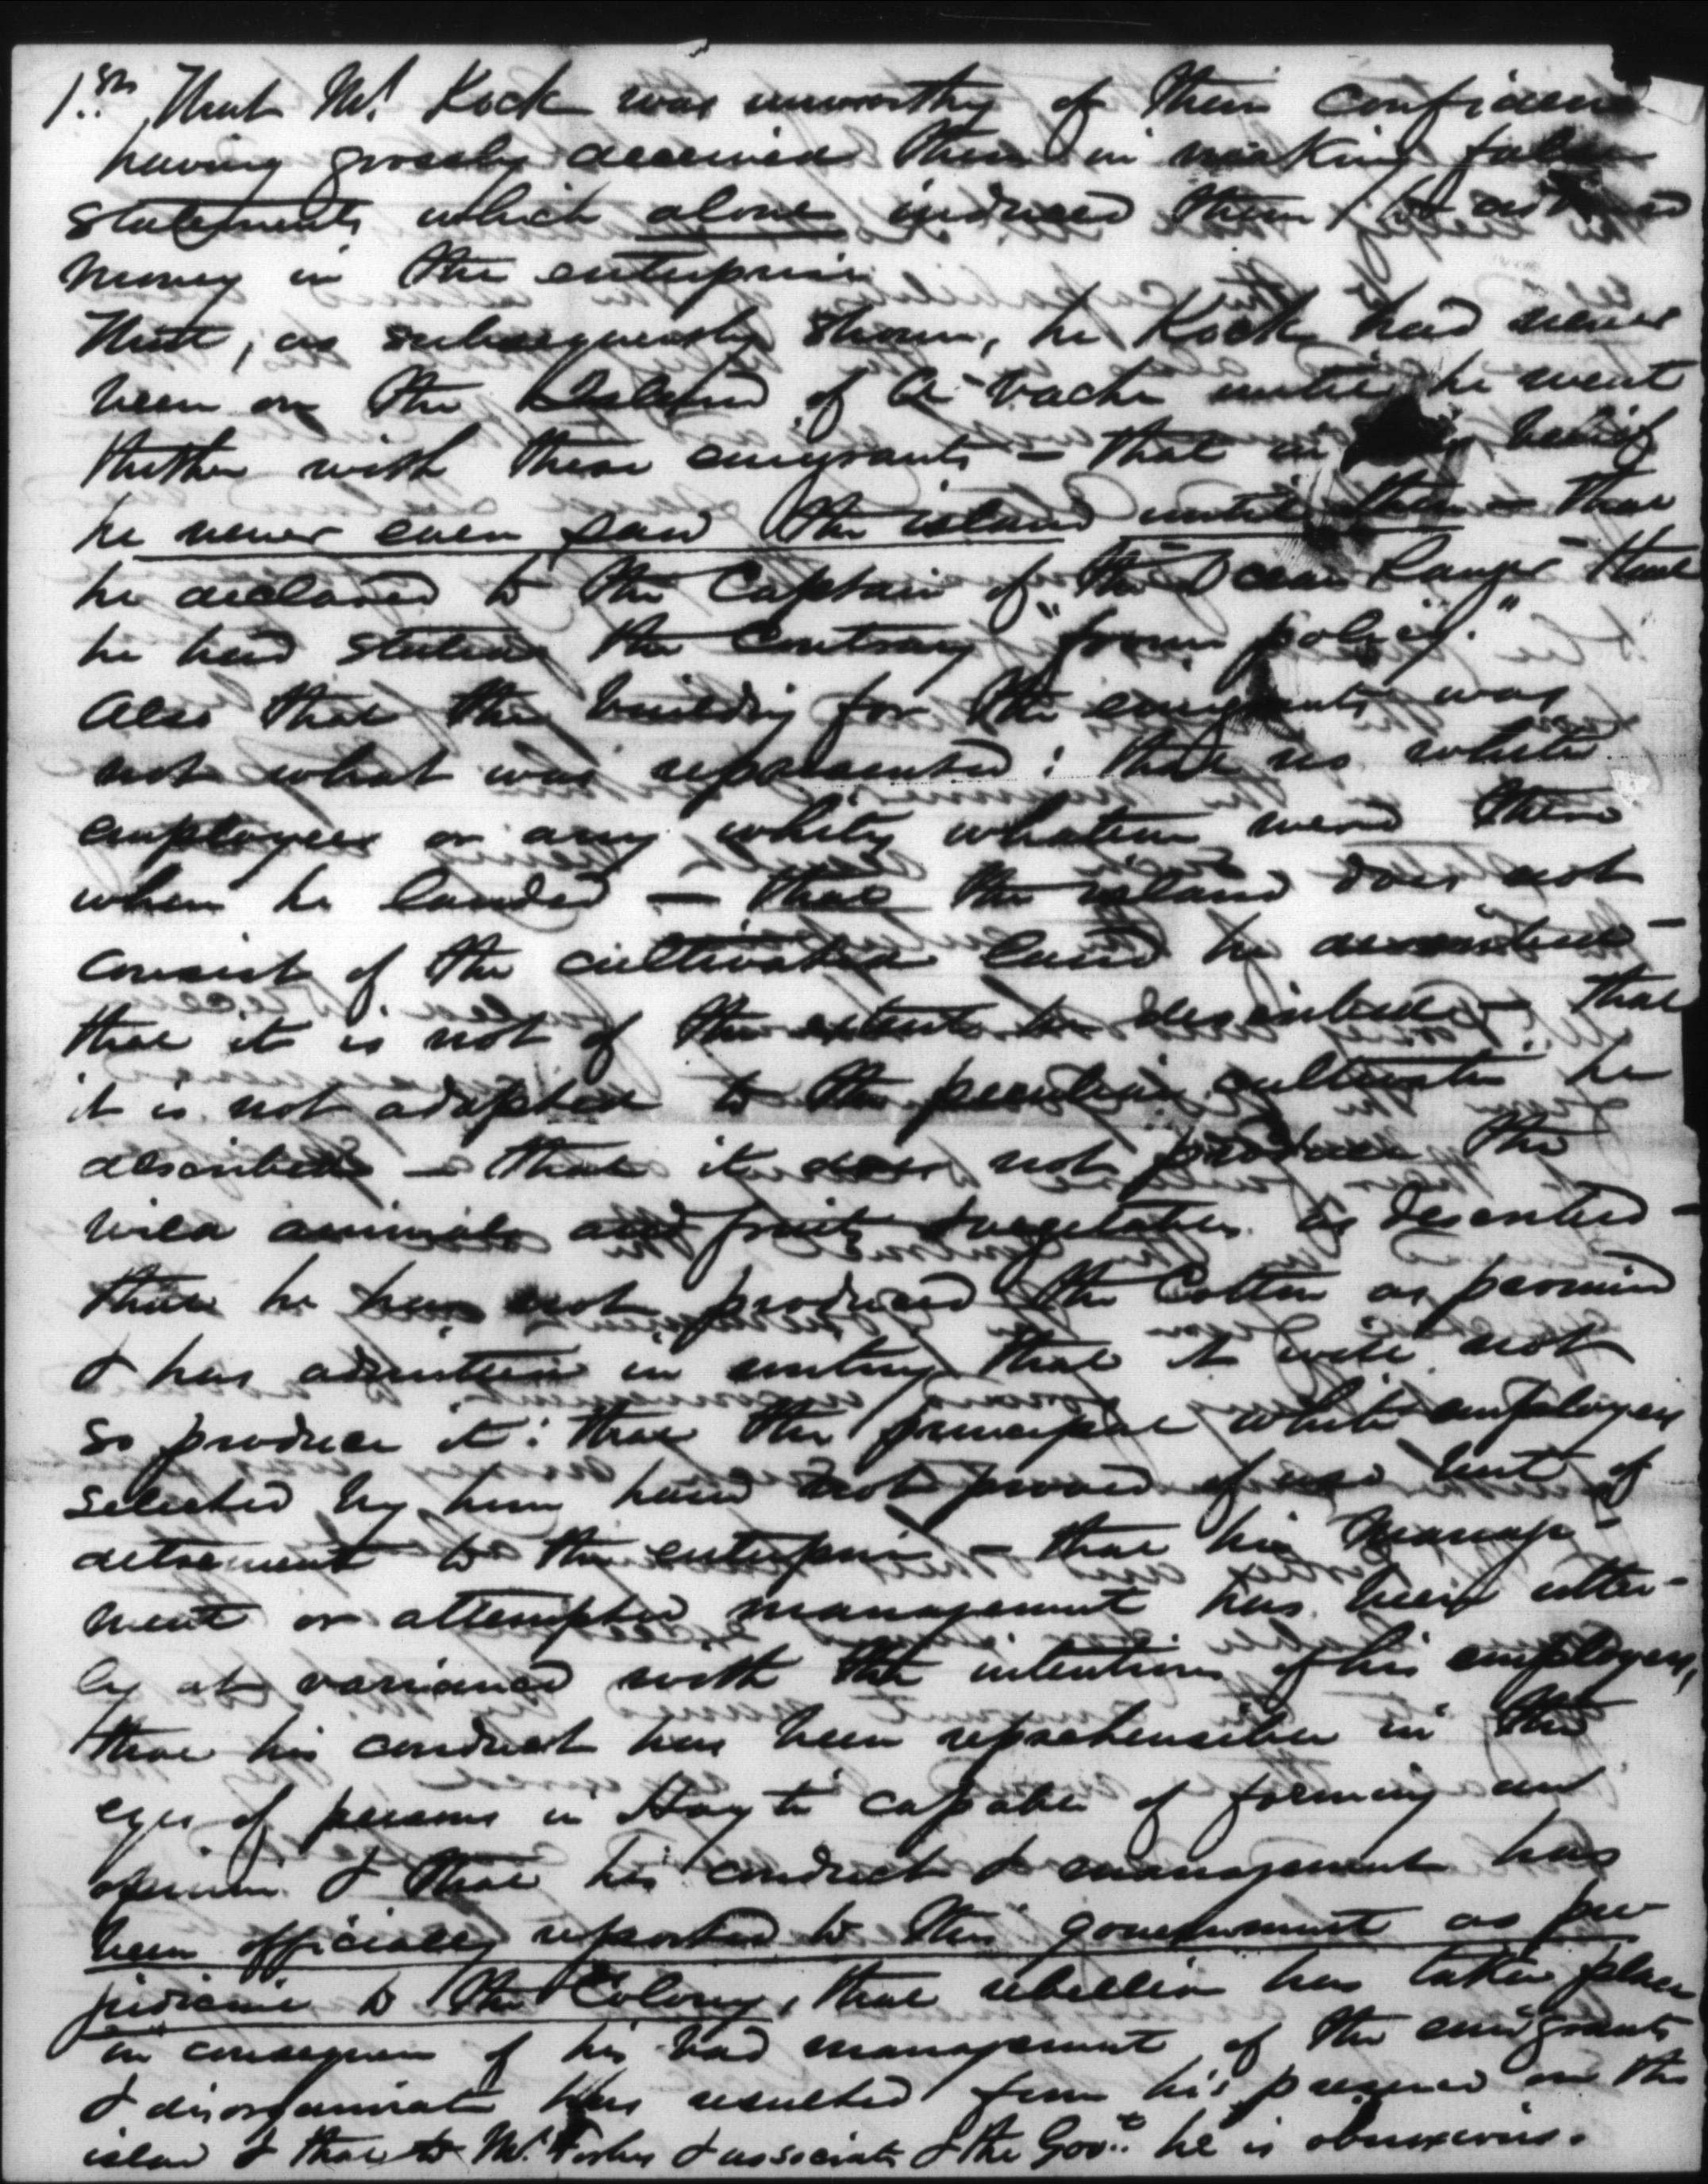 1st That Mr. Kock was unworthy of their confidence
having grossly deceived them in making false
statements which alone induced them to
money in the enterprise
That, as subsequently shown, he Kock had never
been on the Island of A-Vache until he went
thither with these emigrants – that in belief
he never even saw the island until then – that
he declared to the Captain of the "Ocean Ranger" that
he had stated the contrary "from policy."
Also that the building for the emigrants was
not what was represented: that no white
employees or any whites whatever were there
when he landed – that the island does not
consist of the cultivated land he –
that it is not of the extent he described – that
it is not adapted to the peculiar cultivation he
described – that it does not produce the
wild animals and fruits & vegetables as described –
that he has not produced the Cotton as promised
& has admitted in writing that it will not
so produce it: that the principal white employees
selected by him have not proved of use but of
detriment to the enterprise – that his manage-
ment or attempted management has been utter-
ly at variance with the intentions of his employers,
that his conduct has been reprehensible in the
eyes of persons in Hayti capable of forming an
opinion & that his conduct & management has
been officially reported to this government as pre
judicial to the Colony, that rebellion has taken place
in consequence of his bad management of the emigrants
& disorganization has resulted from his presence on the
island & that to Mr. Forbes & associates & the Govt. he is obnoxious.